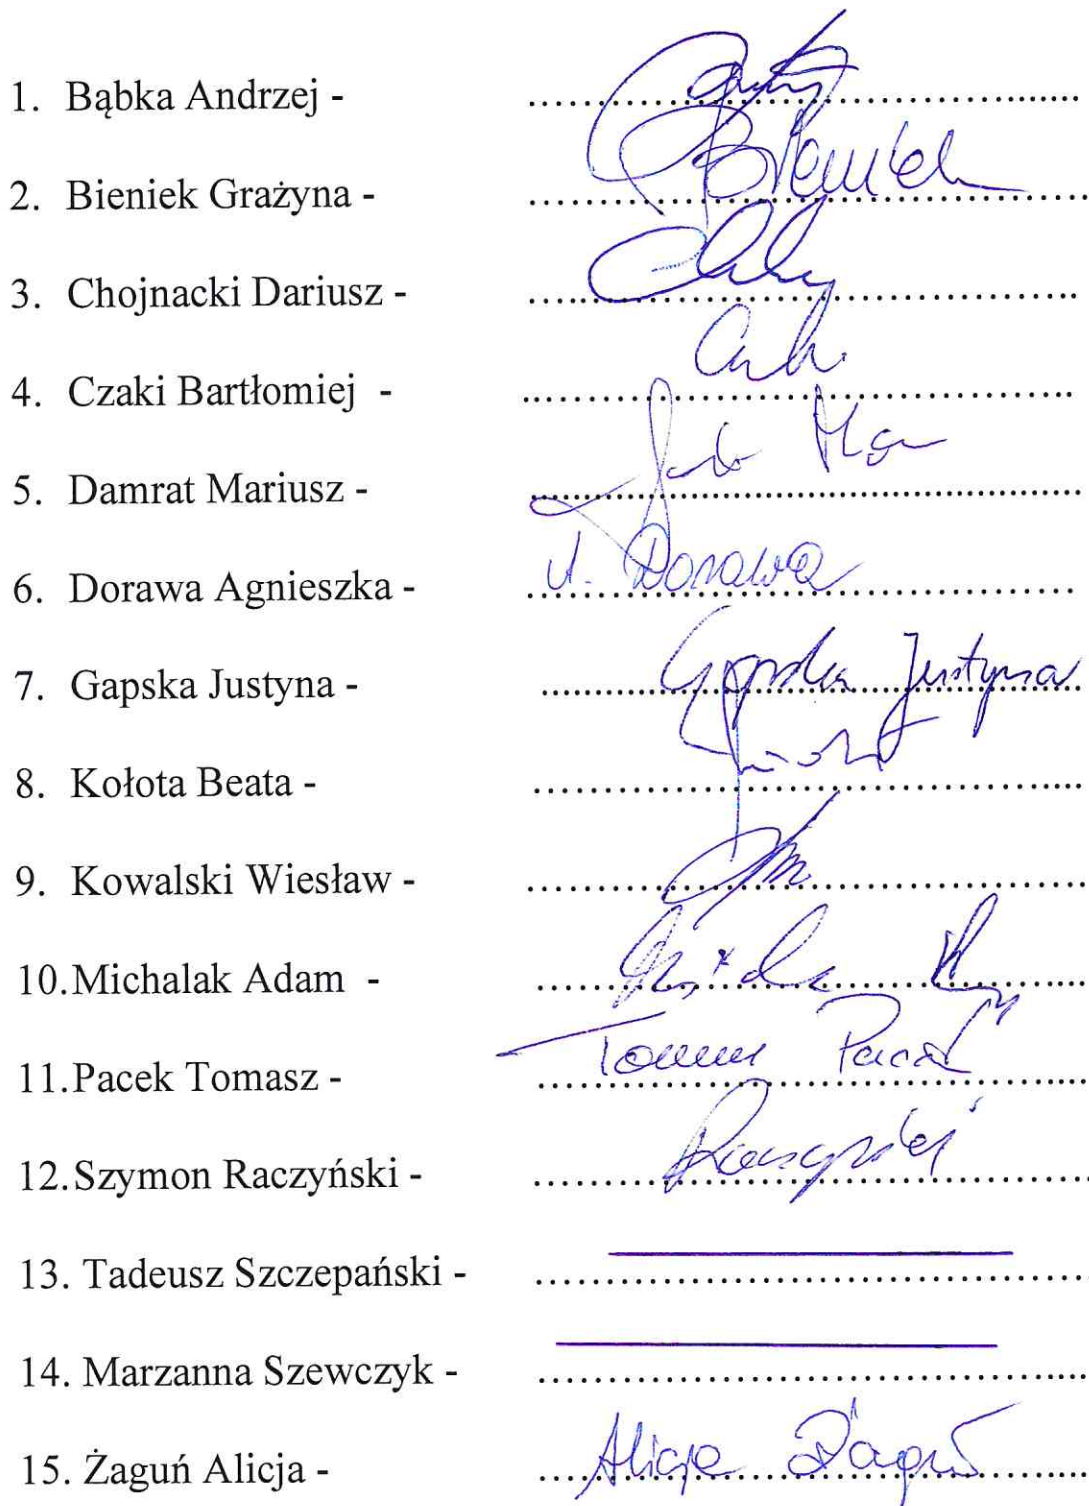 1. Bąbka Andrzej - ........................................
2. Bieniek Grażyna - ........................................ Bieniek
3. Chojnacki Dariusz - ........................................
4. Czaki Bartłomiej - ........................................
5. Damrat Mariusz - ........................................
6. Dorawa Agnieszka - ........................................ A. Dorawa
7. Gapska Justyna - ........................................ Gapska Justyna
8. Kołota Beata - ........................................
9. Kowalski Wiesław - ........................................
10. Michalak Adam - ........................................
11. Pacek Tomasz - ........................................ Tomasz Pacek
12. Szymon Raczyński - ........................................ Raczyński
13. Tadeusz Szczepański - ........................................
14. Marzanna Szewczyk - ........................................
15. Żaguń Alicja - ........................................ Alicja Żaguń